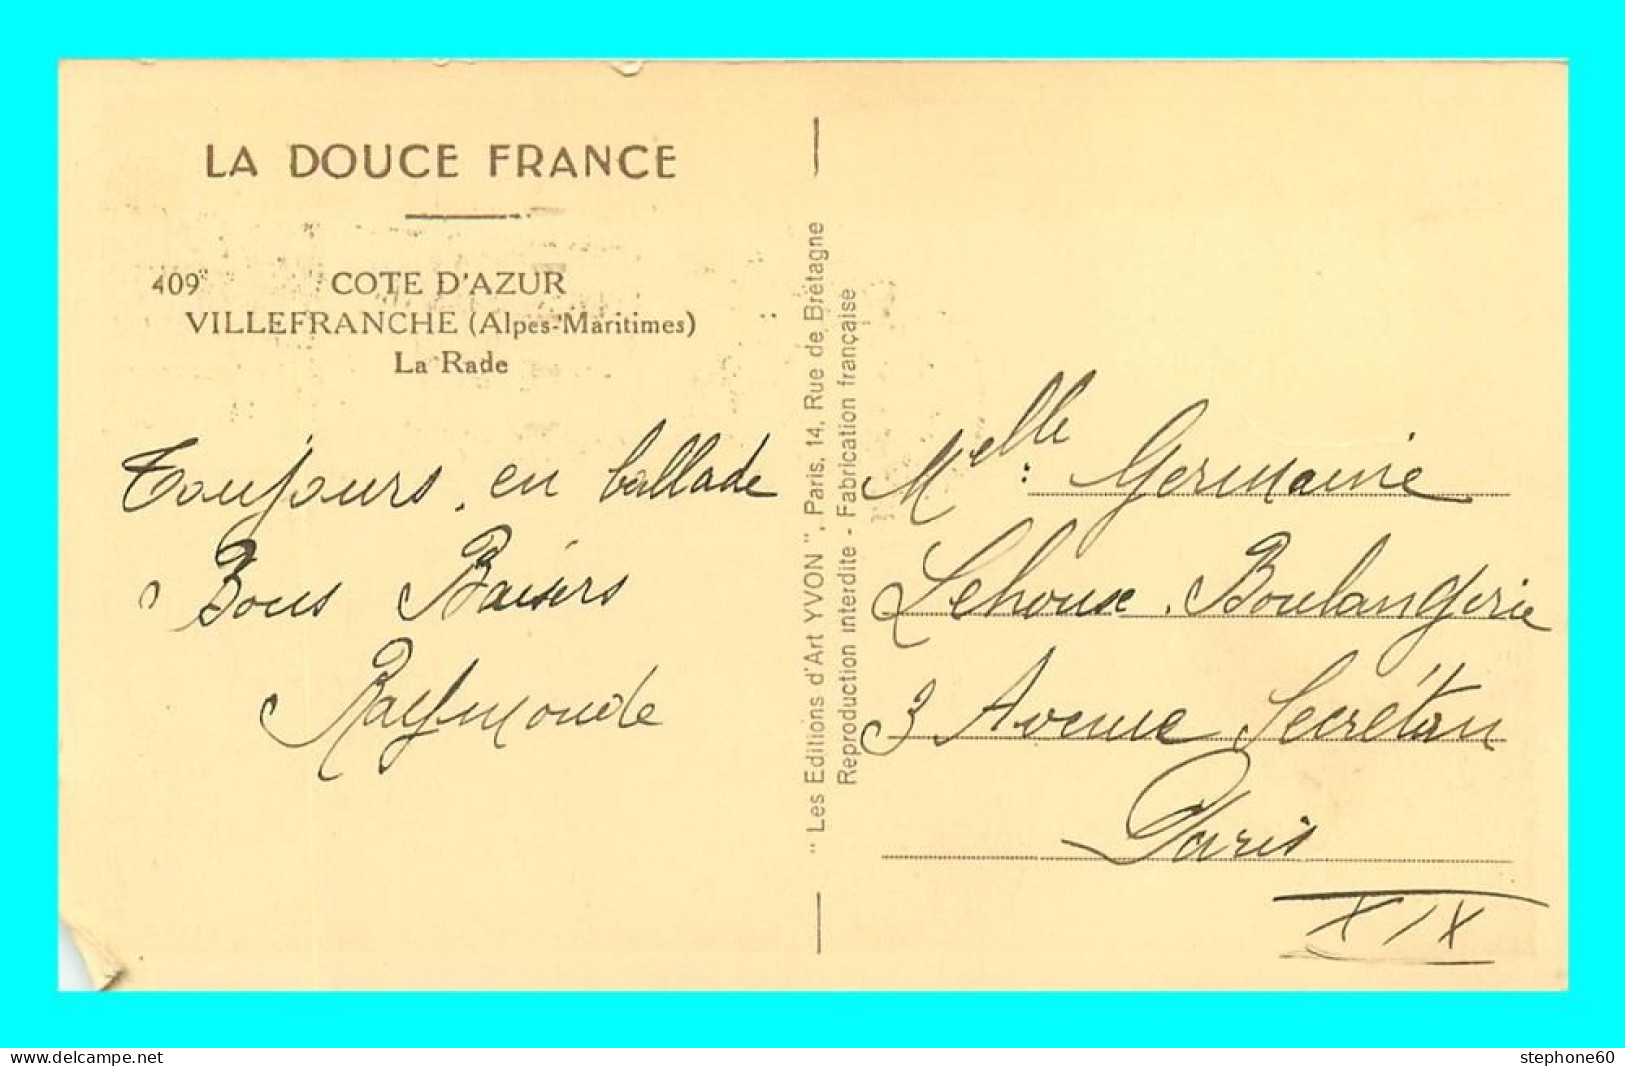 LA DOUCE FRANCE
409 COTE D'AZUR
VILLEFRANCHE (Alpes-Maritimes)
La Rade
Toujours en ballade
Bons Baisers
Raymonde
" Les Editions d'Art YVON ", Paris, 14, Rue de Bretagne
Reproduction interdite - Fabrication française
Melle Germaine
Lehoux. Boulangerie
3 Avenue Secrétan
Paris
XIX
delcampe.net
stephone60